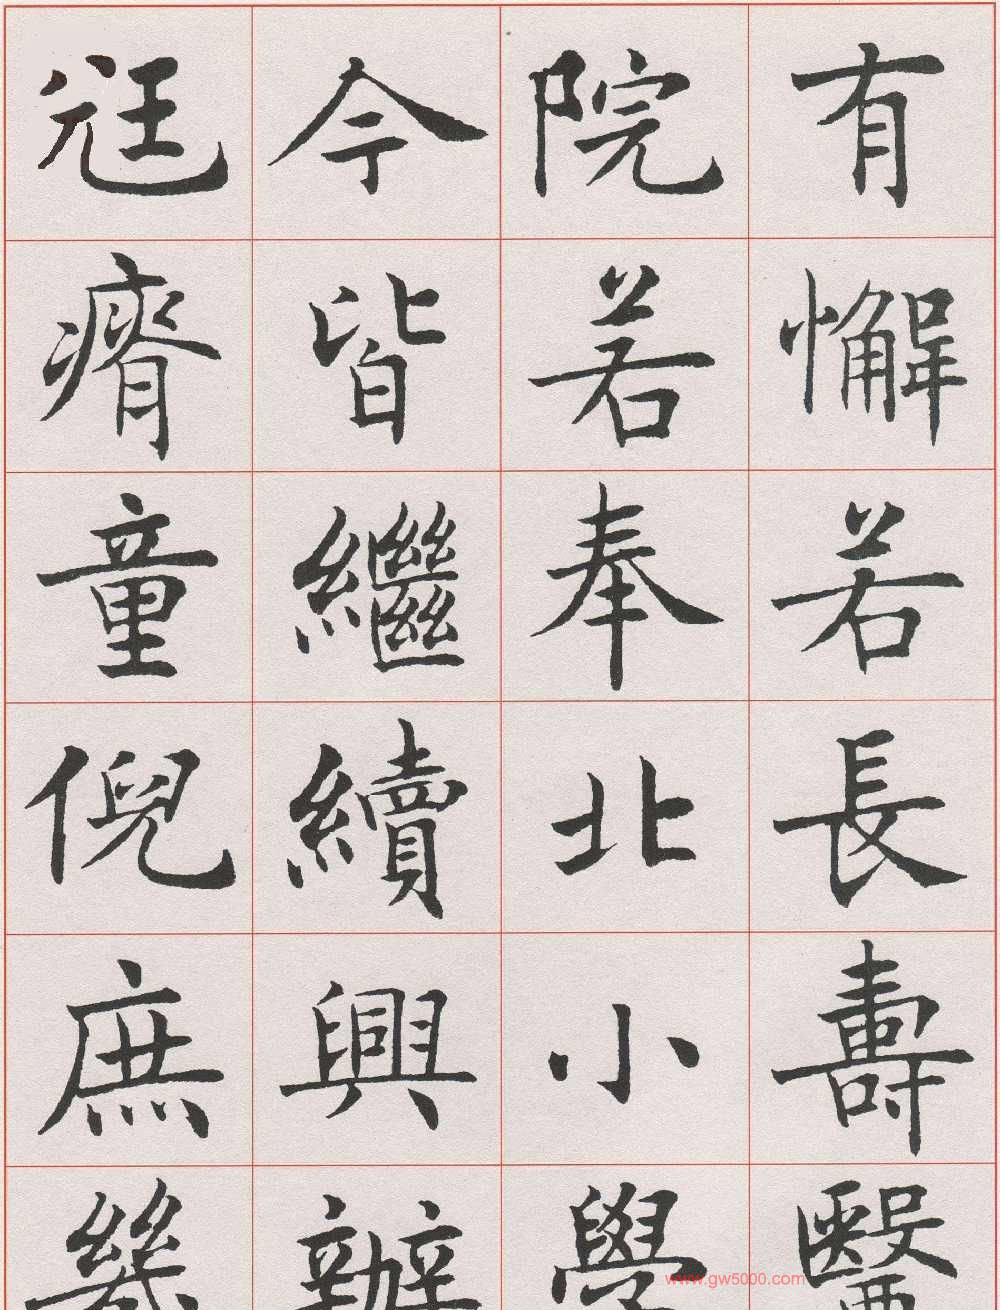 有懈若長壽醫
院若奉北小學
今皆繼續興辦
尫瘠童倪庶幾
www.gw5000.com